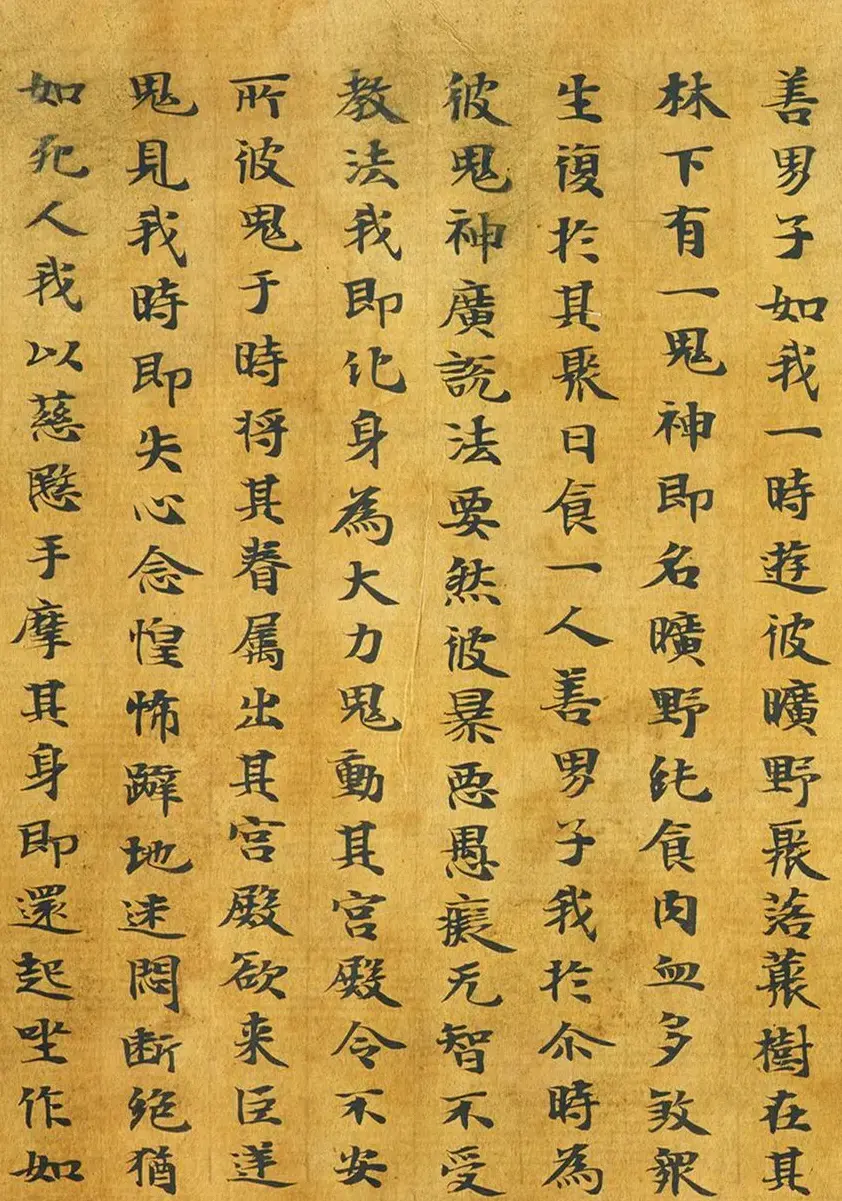 善男子如我一時遊彼曠野聚落藂樹在其
林下有一鬼神即名曠野純食肉血多煞眾
生復於其聚日食一人善男子我於尒時為
彼鬼神廣説法要然彼暴惡愚癡无智不受
教法我即化身為大力鬼動其宮殿令不安
所彼鬼于時将其眷属出其宮殿欲来拒逆
鬼見我時即失心念惶怖躃地迷悶断絶猶
如死人我以慈愍手摩其身即還起坐作如